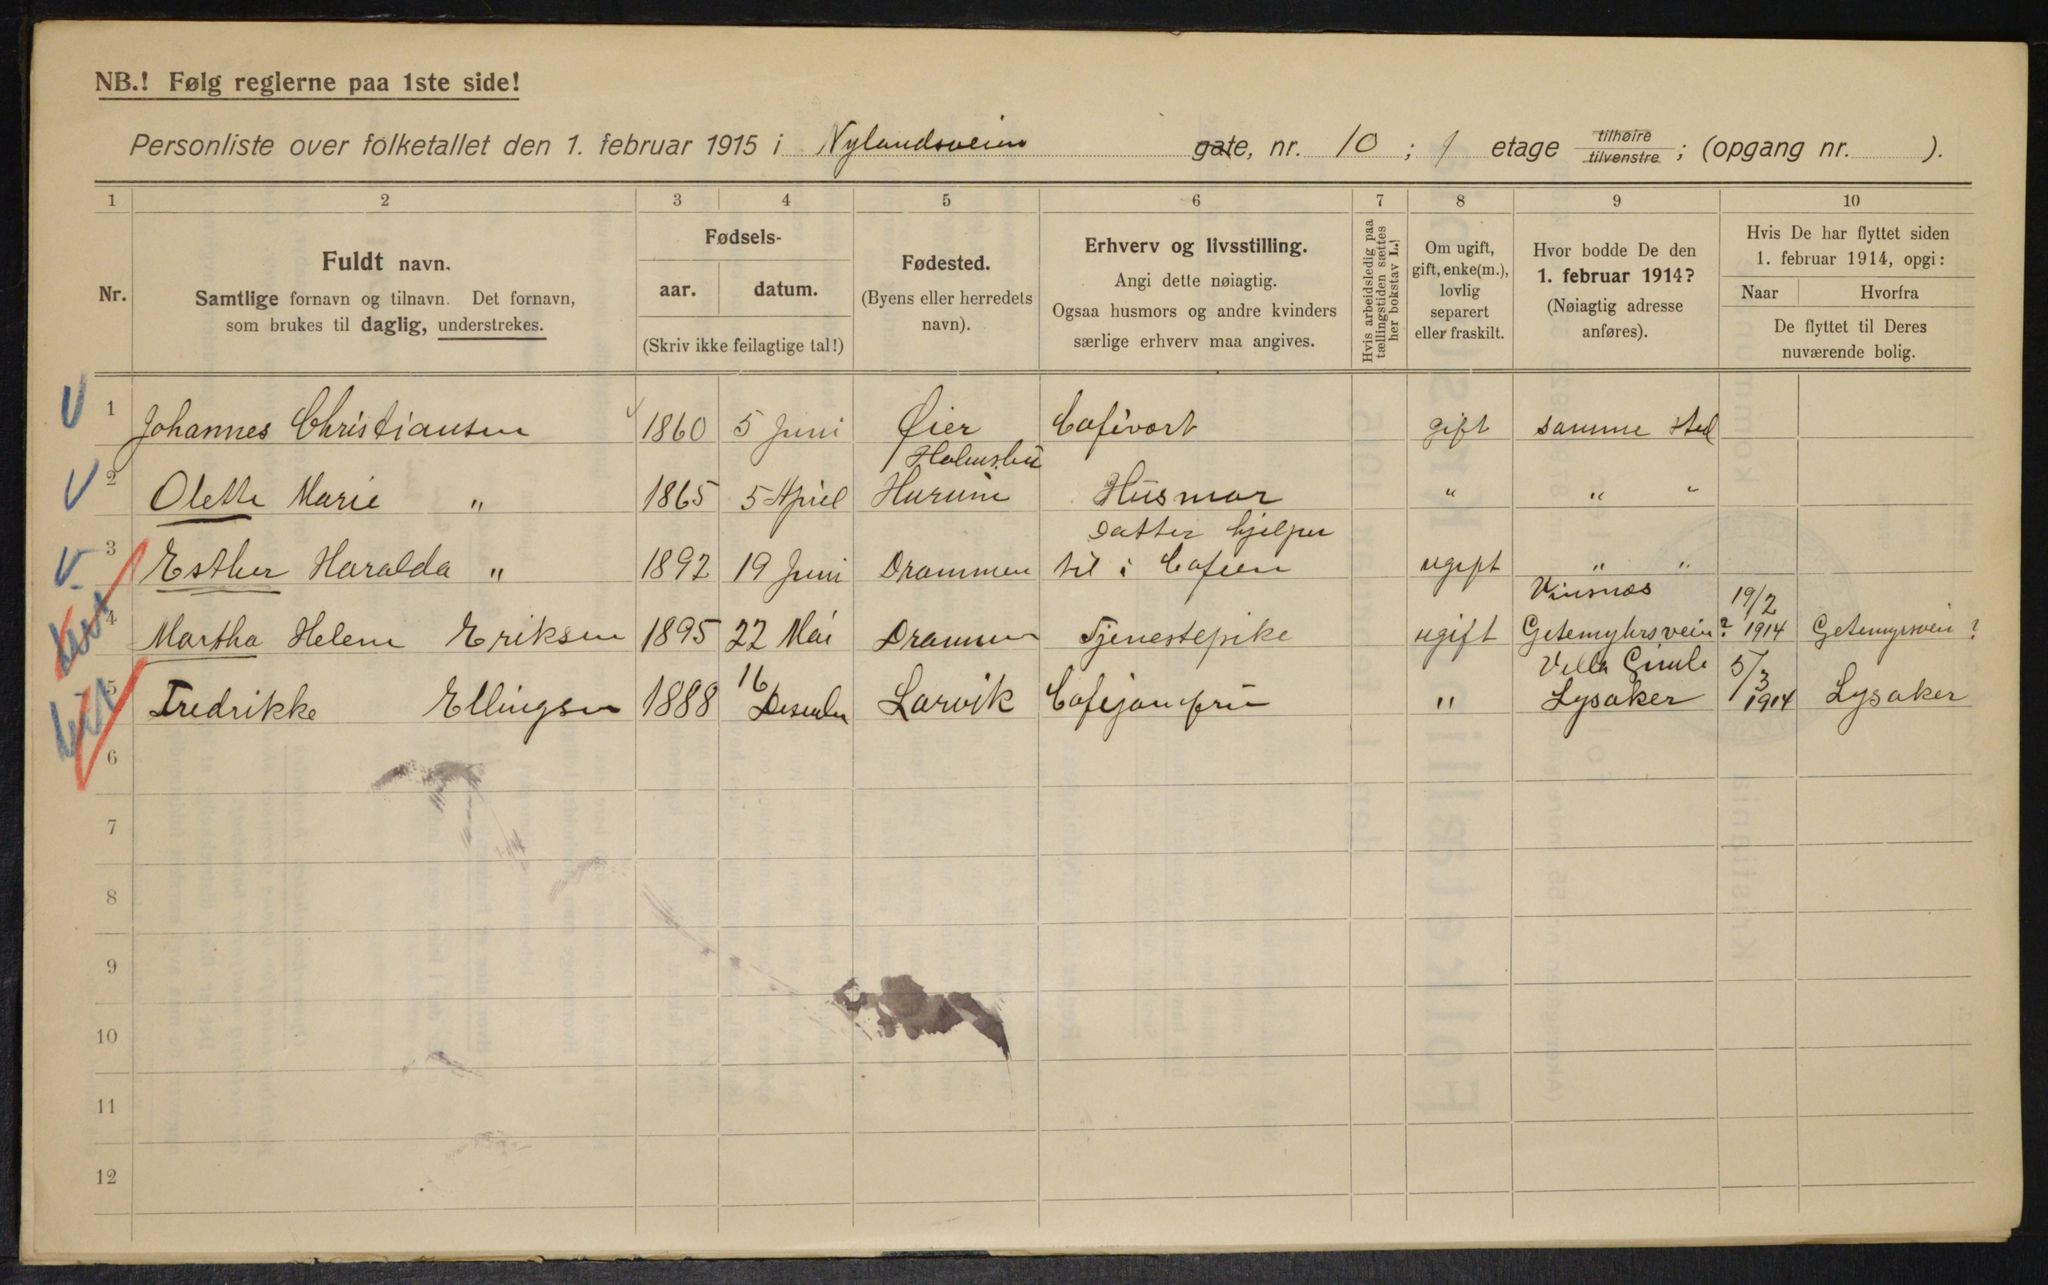 NB.! Følg reglerne paa 1ste side!
Personliste over folketallet den 1. februar 1915 i Nylandsveien gate, nr. 10 ; 1 etage tilhøire tilvenstre ; (opgang nr. ).
1 2 3 4 5 6 7 8 9 10
Nr.
Fuldt navn.
Samtlige fornavn og tilnavn. Det fornavn,
som brukes til daglig, understrekes.
Fødsels-
aar. datum.
(Skriv ikke feilagtige tal!)
Fødested.
(Byens eller herredets
navn).
Erhverv og livsstilling.
Angi dette nøiagtig.
Ogsaa husmors og andre kvinders
særlige erhverv maa angives.
Hvis arbeidsledig paa
tællingstiden sættes
her bokstav L.!
Om ugift,
gift, enke(m.),
lovlig
separert
eller fraskilt.
Hvor bodde De den
1. februar 1914?
(Nøiagtig adresse
anføres).
Hvis De har flyttet siden
1. februar 1914, opgi:
Naar Hvorfra
De flyttet til Deres
nuværende bolig.
1 Johannes Christiansen 1860 5 Juni Øier Cafévært gift samme sted
Holmsbu
2 Olette Marie " 1865 5 April Hurum Husmor " " "
Datter hjelper
3 Esther Haralda " 1892 19 Juni Drammen til i Cafeen ugift " "
Vinsnæs 19/2
4 Martha Helene Eriksen 1895 22 Mai Drammen Tjenestepike ugift Getemyhrsvein? 1914 Getemyrsvein?
16 Villa Gimle 5/3
5 Fredrikke Ellingsen 1888 Desember Larvik Cafejomfru " Lysaker 1914 Lysaker
6
7
8
9
10
11
12